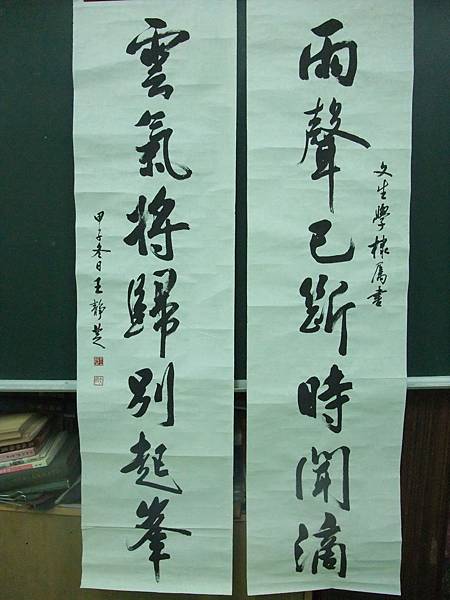 雨聲已斷時聞滴
文生學棣屬書
雲氣將歸別起峯
甲子冬日王靜芝